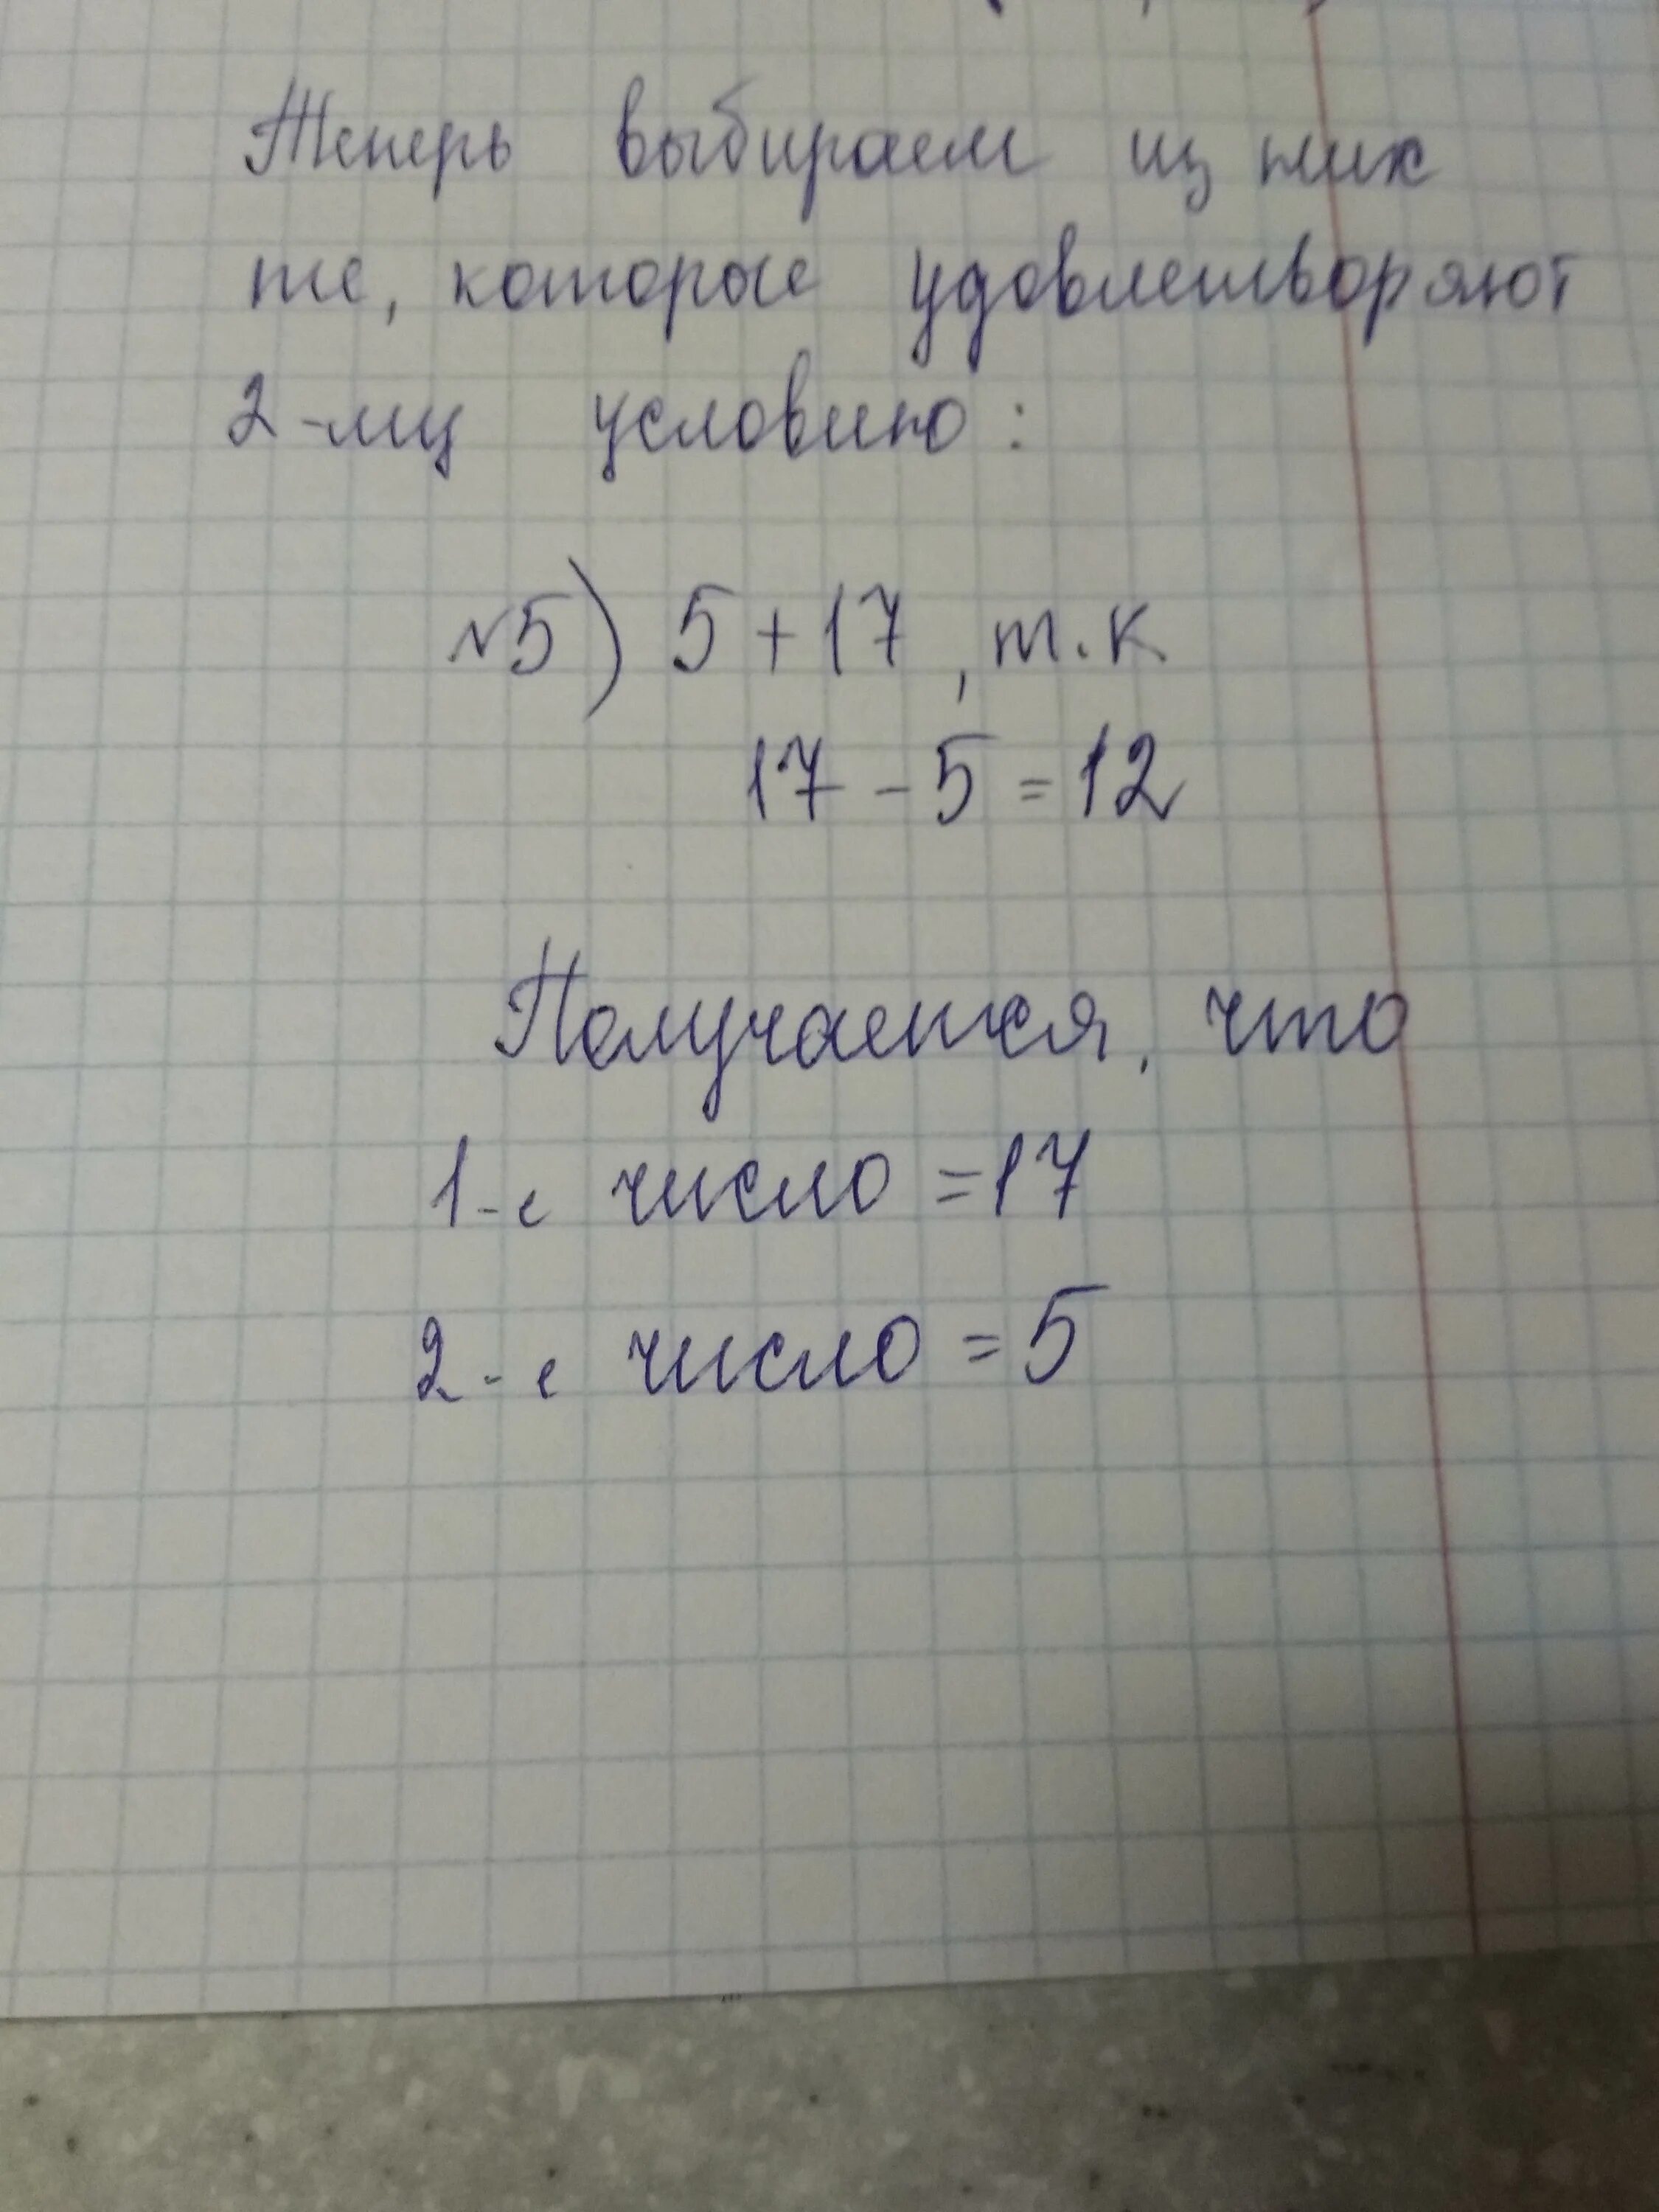 Теперь выбираем из них
те, которые удовлетворяют
2-му условию:
№5) 5+17, т.к
17-5=12
Получается, что
1-е число =17
2-е число =5